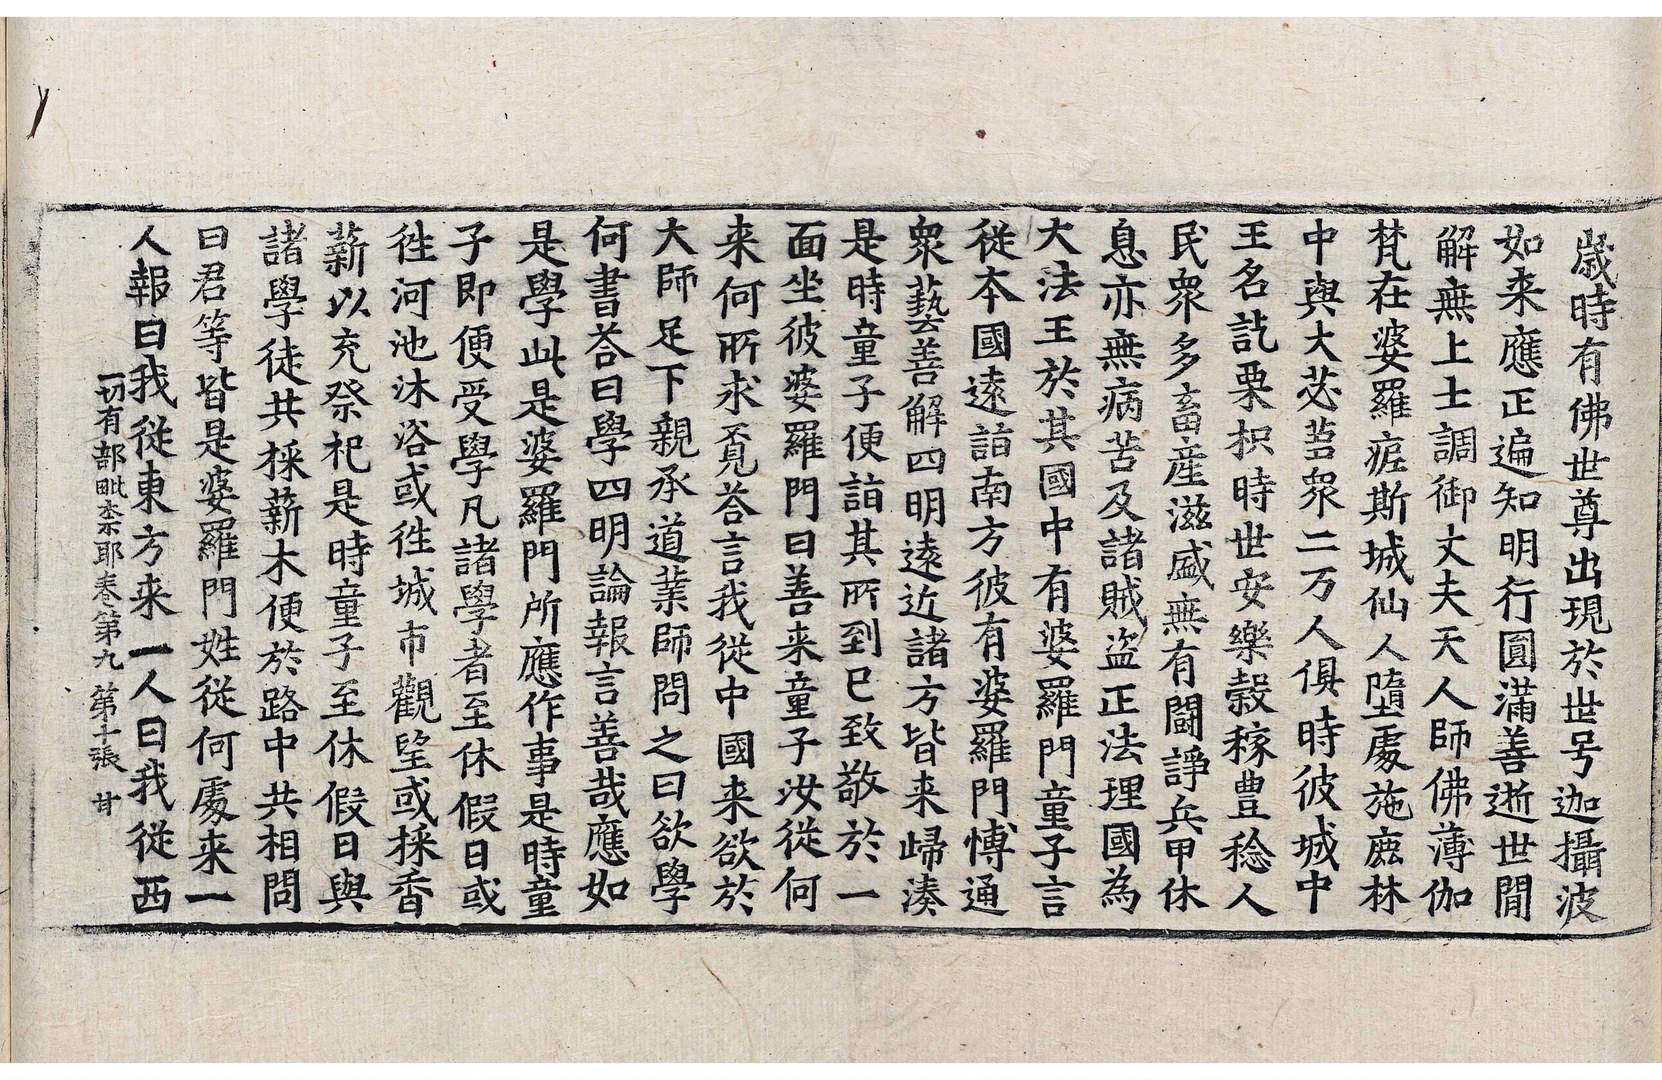 歲時有佛世尊出現於世号迦攝波
如来應正遍知明行圓滿善逝世間
解無上士調御丈夫天人師佛薄伽
梵在婆羅痆斯城仙人墮處施鹿林
中與大苾芻眾二万人俱時彼城中
王名訖栗枳時世安樂穀稼豊稔人
民眾多畜產滋盛無有鬪諍兵甲休
息亦無病苦及諸賊盜正法理國為
大法王於其國中有婆羅門童子言
從本國遠詣南方彼有婆羅門博通
眾藝善解四明遠近諸方皆来歸湊
是時童子便詣其所到已致敬於一
面坐彼婆羅門曰善来童子汝從何
来何所求覓荅言我從中國来欲於
大師足下親承道業師問之曰欲學
何書荅曰學四明論報言善哉應如
是學此是婆羅門所應作事是時童
子即便受學凡諸學者至休假日或
徃河池沐浴或徃城市觀望或採香
薪以充祭祀是時童子至休假日與
諸學徒共採薪木便於路中共相問
曰君等皆是婆羅門姓從何處来一
人報曰我從東方来一人曰我從西
一切有部毗柰耶卷第九 第十張 甘